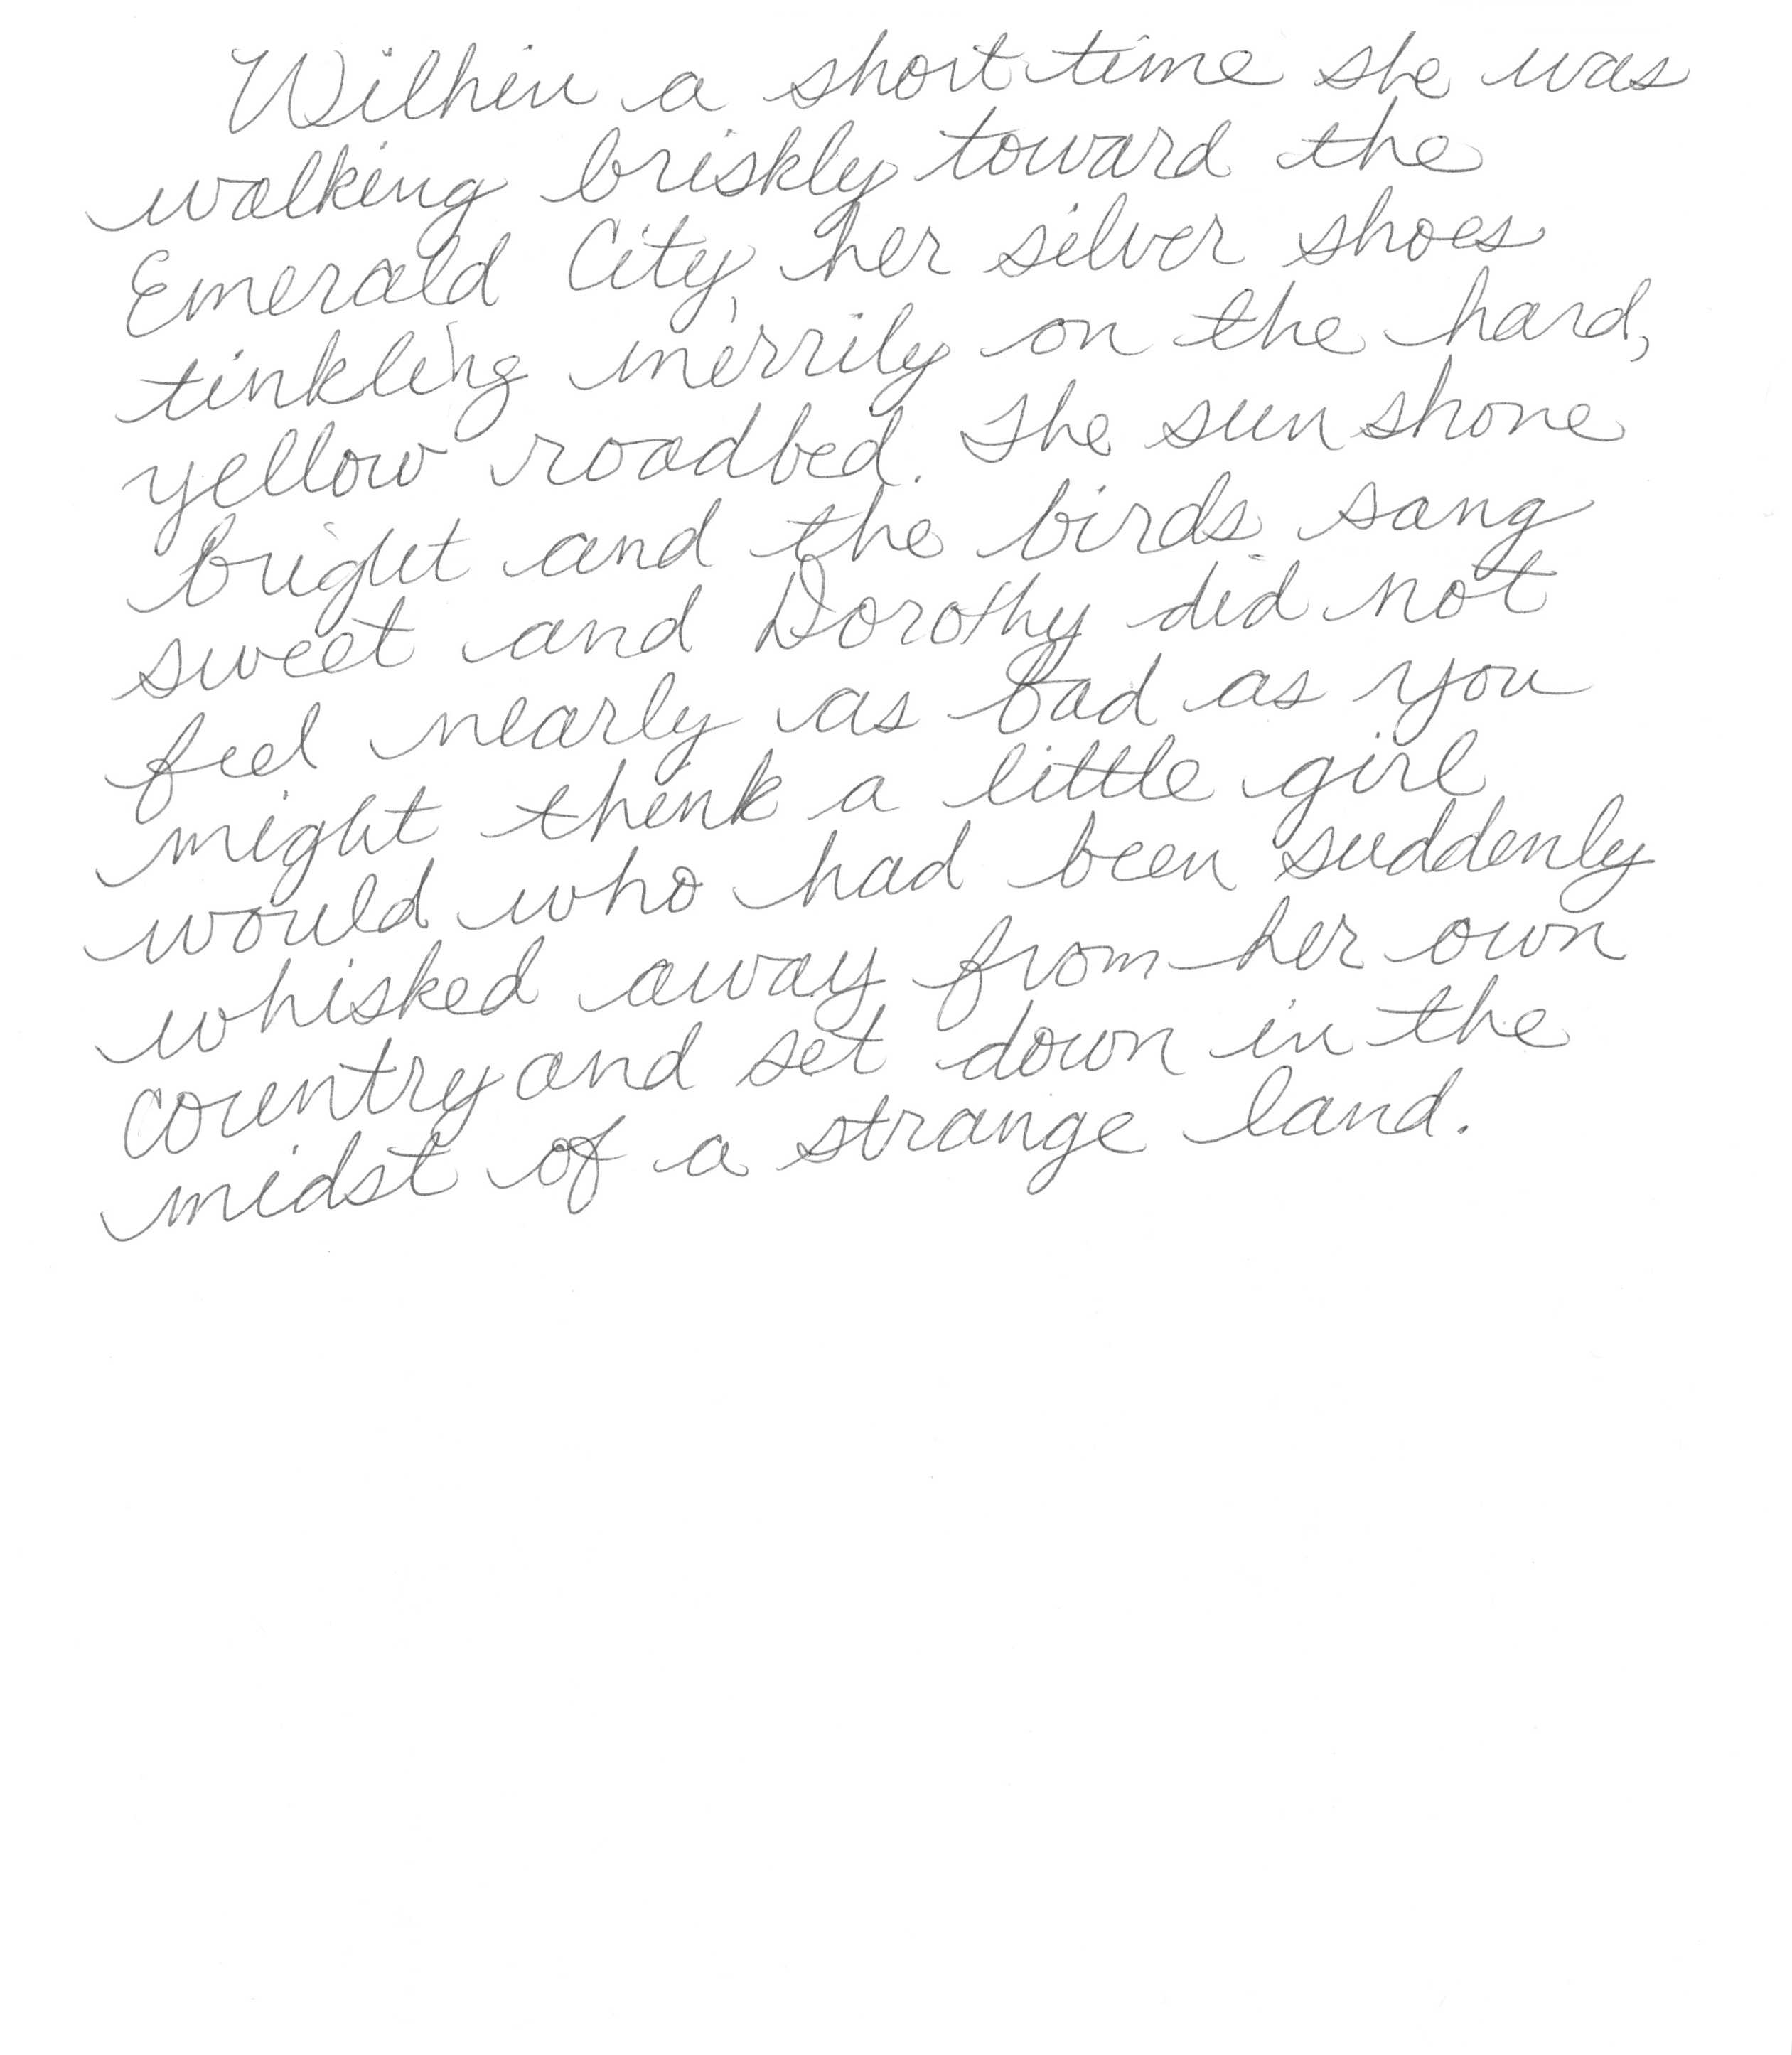 Within a short time she was
walking briskly toward the
Emerald City, her silver shoes
tinkling merrily on the hard,
yellow roadbed. The sun shone
bright and the birds sang
sweet and Dorothy did not
feel nearly as bad as you
might think a little girl
would who had been suddenly
whisked away from her own
country and set down in the
midst of a strange land.